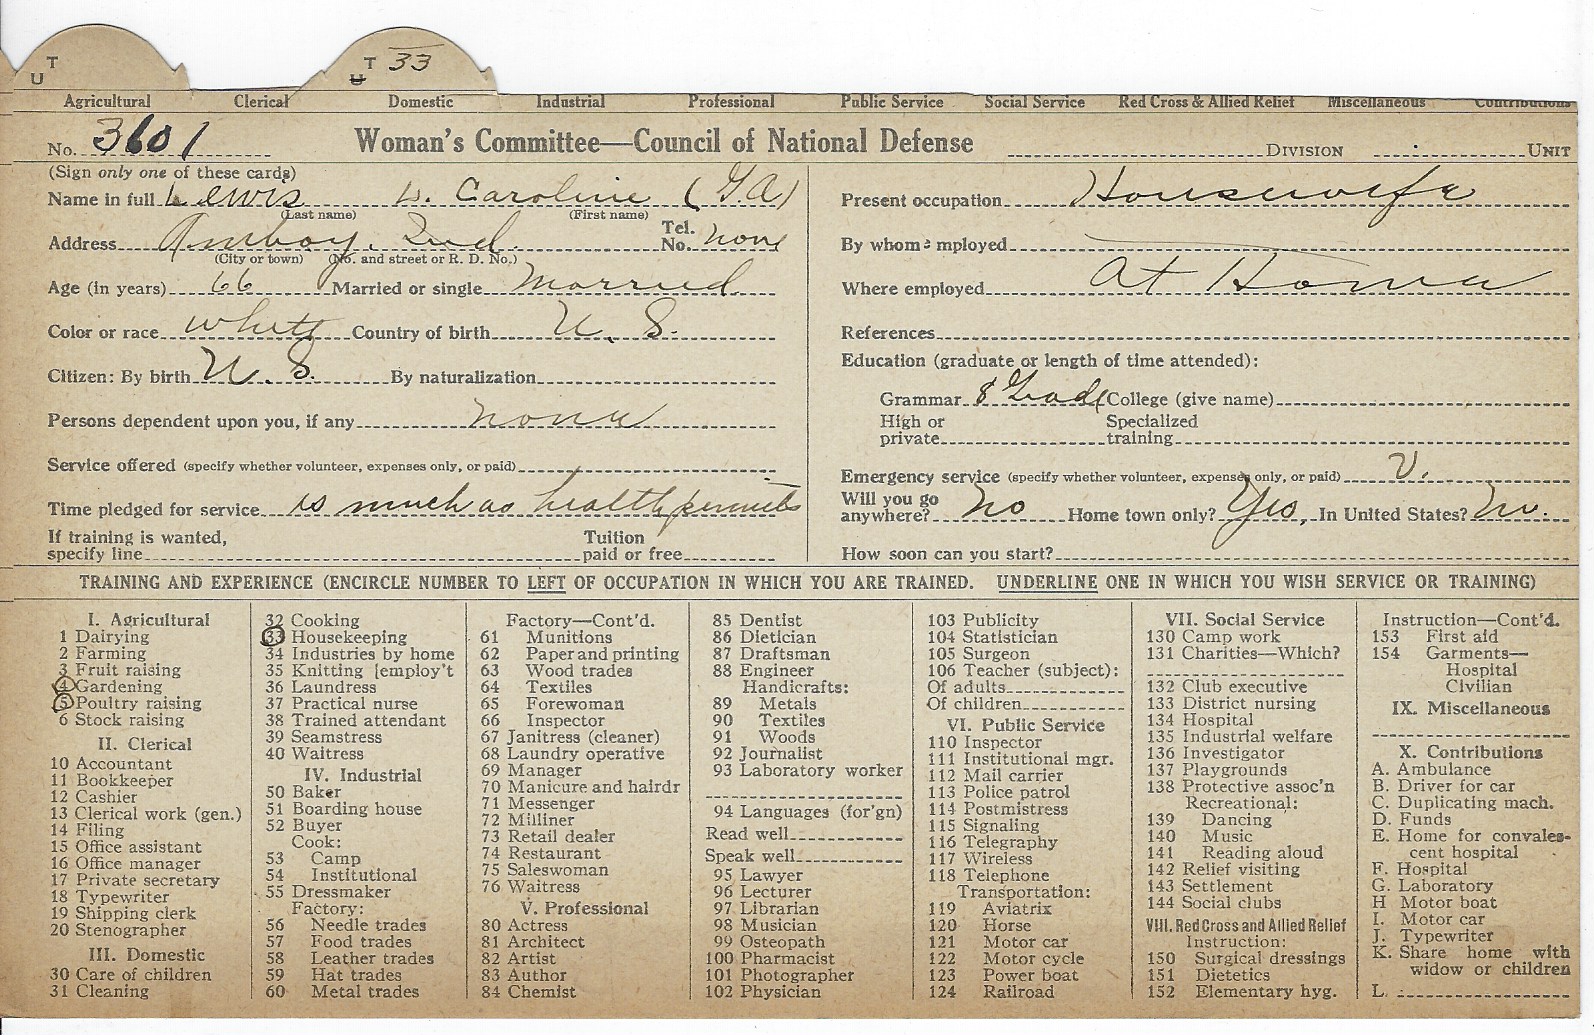 T U T U 33
Agricultural Clerical Domestic Industrial Professional Public Service Social Service Red Cross & Allied Relief Miscellaneous Contributions
No. 3601 Woman's Committee—Council of National Defense DIVISION UNIT
(Sign only one of these cards)
Name in full Lewis W. Caroline (G.A)
(Last name) (First name)
Address Amboy, Ind. Tel. No. none
(City or town) (No. and street or R. D. No.)
Age (in years) 66 Married or single Married
Color or race white Country of birth U. S.
Citizen: By birth U. S. By naturalization
Persons dependent upon you, if any none
Service offered (specify whether volunteer, expenses only, or paid)
Time pledged for service is much as health permits
If training is wanted, specify line Tuition paid or free
Present occupation Housewife
By whom employed
Where employed At Home
References
Education (graduate or length of time attended):
Grammar 8 Grade College (give name)
High or private Specialized training
Emergency service (specify whether volunteer, expenses only, or paid) V.
Will you go anywhere? No Home town only? Yes, In United States? No.
How soon can you start?
TRAINING AND EXPERIENCE (ENCIRCLE NUMBER TO LEFT OF OCCUPATION IN WHICH YOU ARE TRAINED. UNDERLINE ONE IN WHICH YOU WISH SERVICE OR TRAINING)
I. Agricultural
1 Dairying
2 Farming
3 Fruit raising
4 Gardening
5 Poultry raising
6 Stock raising
II. Clerical
10 Accountant
11 Bookkeeper
12 Cashier
13 Clerical work (gen.)
14 Filing
15 Office assistant
16 Office manager
17 Private secretary
18 Typewriter
19 Shipping clerk
20 Stenographer
III. Domestic
30 Care of children
31 Cleaning
32 Cooking
33 Housekeeping
34 Industries by home
35 Knitting [employ't
36 Laundress
37 Practical nurse
38 Trained attendant
39 Seamstress
40 Waitress
IV. Industrial
50 Baker
51 Boarding house
52 Buyer
Cook:
53 Camp
54 Institutional
55 Dressmaker
Factory:
56 Needle trades
57 Food trades
58 Leather trades
59 Hat trades
60 Metal trades
Factory—Cont'd.
61 Munitions
62 Paper and printing
63 Wood trades
64 Textiles
65 Forewoman
66 Inspector
67 Janitress (cleaner)
68 Laundry operative
69 Manager
70 Manicure and hairdr
71 Messenger
72 Milliner
73 Retail dealer
74 Restaurant
75 Saleswoman
76 Waitress
V. Professional
80 Actress
81 Architect
82 Artist
83 Author
84 Chemist
85 Dentist
86 Dietician
87 Draftsman
88 Engineer
Handicrafts:
89 Metals
90 Textiles
91 Woods
92 Journalist
93 Laboratory worker
94 Languages (for'gn)
Read well
Speak well
95 Lawyer
96 Lecturer
97 Librarian
98 Musician
99 Osteopath
100 Pharmacist
101 Photographer
102 Physician
103 Publicity
104 Statistician
105 Surgeon
106 Teacher (subject):
Of adults
Of children
VI. Public Service
110 Inspector
111 Institutional mgr.
112 Mail carrier
113 Police patrol
114 Postmistress
115 Signaling
116 Telegraphy
117 Wireless
118 Telephone
Transportation:
119 Aviatrix
120 Horse
121 Motor car
122 Motor cycle
123 Power boat
124 Railroad
VII. Social Service
130 Camp work
131 Charities—Which?
132 Club executive
133 District nursing
134 Hospital
135 Industrial welfare
136 Investigator
137 Playgrounds
138 Protective assoc'n
Recreational:
139 Dancing
140 Music
141 Reading aloud
142 Relief visiting
143 Settlement
144 Social clubs
VIII. Red Cross and Allied Relief
Instruction:
150 Surgical dressings
151 Dietetics
152 Elementary hyg.
Instruction—Cont'd.
153 First aid
154 Garments—
Hospital
Civilian
IX. Miscellaneous
X. Contributions
A. Ambulance
B. Driver for car
C. Duplicating mach.
D. Funds
E. Home for convales-
cent hospital
F. Hospital
G. Laboratory
H Motor boat
I. Motor car
J. Typewriter
K. Share home with
widow or children
L.